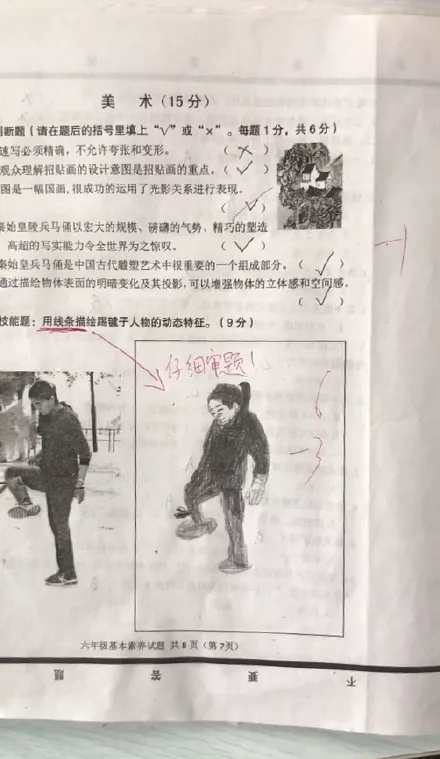 美 术(15分)
判断题(请在题后的括号里填上“√”或“×”。每题1分,共6分)
速写必须精确,不允许夸张和变形。 (×)
观众理解招贴画的设计意图是招贴画的重点。(√)
图是一幅国画,很成功的运用了光影关系进行表现。
(√)
秦始皇陵兵马俑以宏大的规模、磅礴的气势、精巧的塑造
高超的写实能力令全世界为之惊叹。 (√)
秦始皇兵马俑是中国古代雕塑艺术中很重要的一个组成部分。(√)
通过描绘物体表面的明暗变化及其投影,可以增强物体的立体感和空间感。
(√)
-1
技能题:用线条描绘踢毽子人物的动态特征。(9分)
仔细审题!
6
-3
六年级基本素养试题 共8页(第7页)
题 答 要 不